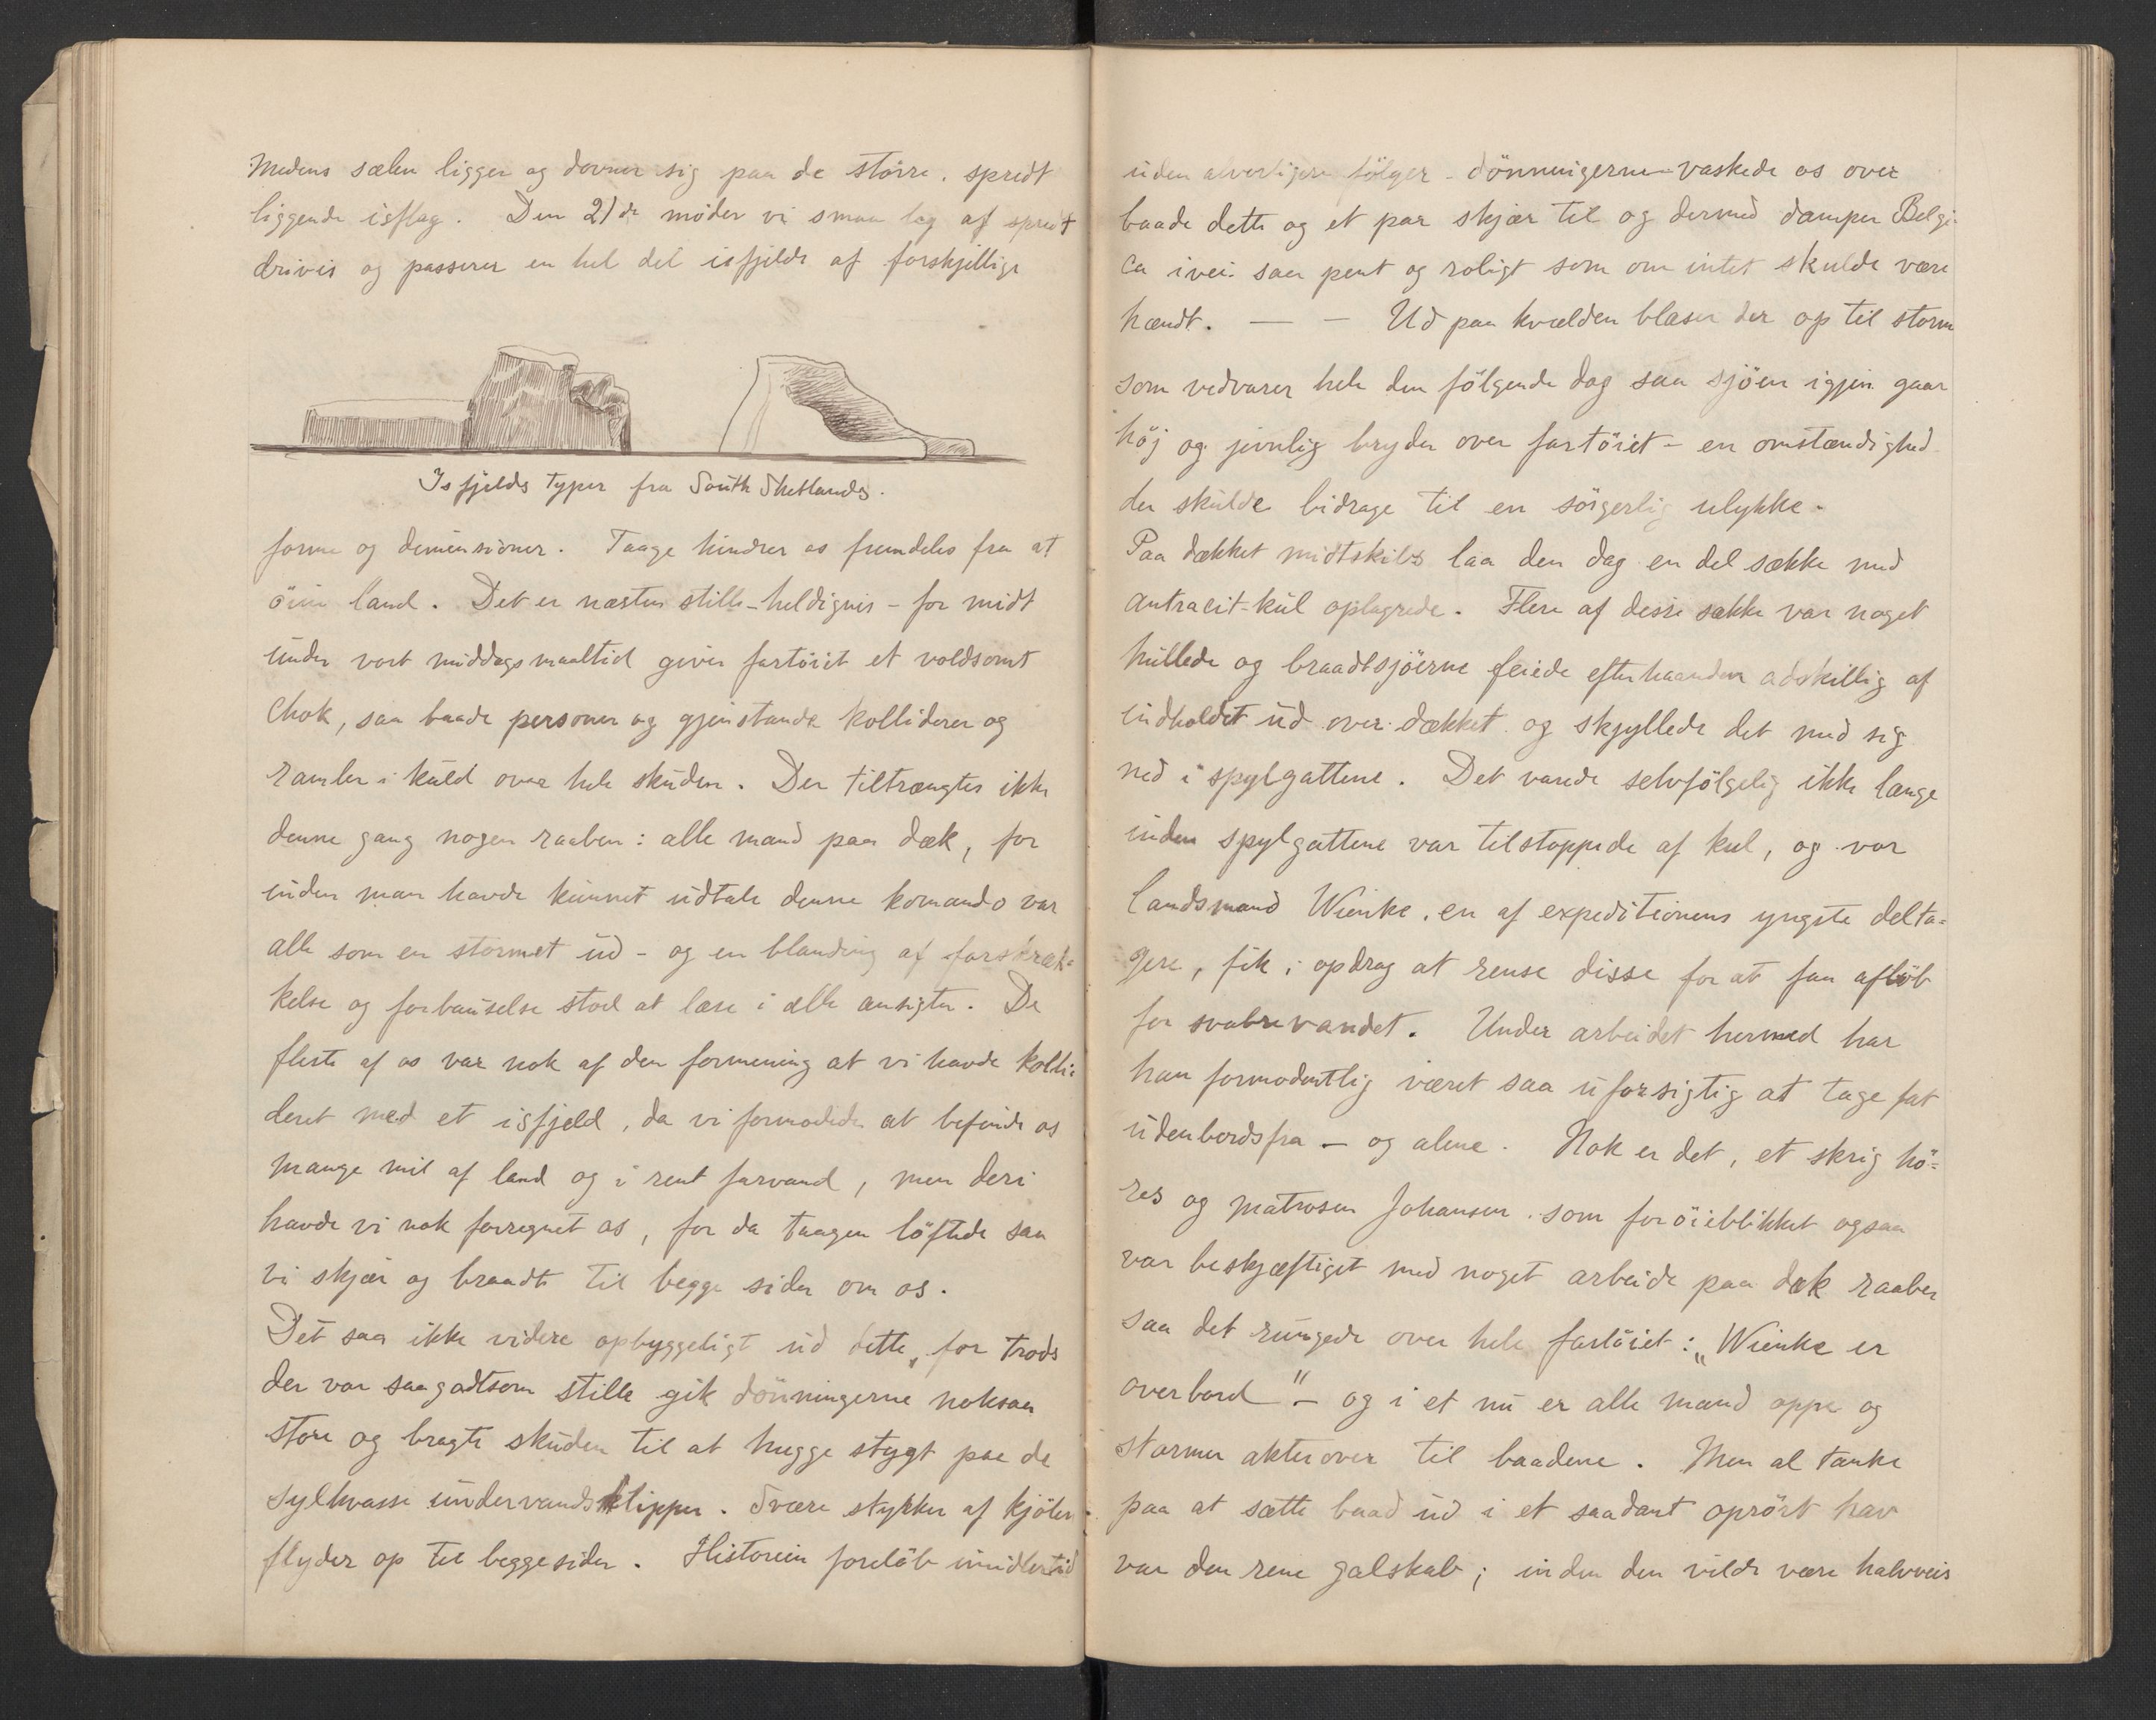 Medens sælen ligger og dovner sig paa de större, spredt
liggende isflag. Den 21de möder vi smaa lag af spredt
drivis og passerer en hel del isfjelde af forskjellige
Isfjelds typer fra South Shetlands.
forme og dimensioner. Taage hindrer os fremdeles fra at
öine land. Det er næsten stille - heldigvis - for midt
under vort middagsmaaltid giver fartöiet et voldsomt
chok, saa baade personer og gjenstande kolliderer og
ramler i kuld over hele skuden. Der tiltrængtes ikke
denne gang nogen raaben: alle mand paa dæk, for
inden man havde kunnet udtale denne komando var
alle som en stormet ud - og en blanding af forskræk-
kelse og forbauselse stod at læse i alle ansigter. De
fleste af os var nok af den formening at vi havde kolli-
deret med et isfjeld, da vi formodede at befinde os
mange mil af land og i rent farvand, men deri
havde vi nok forregnet os, for da taagen löftede saa
vi skjær og braadt til begge sider om os.
Det saa ikke videre opbyggeligt ud dette, for trods
der var saagodtsom stille gik dönningerne noksaa
store og bragte skuden til at hugge stygt paa de
sylhvasse undervandsklipper. Svære stykker af kjölen
flyder op til begge sider. Historien forelöb imidlertid
uden alvorligere fölger - dönningerne vaskede os over
baade dette og et par skjær til og dermed damper Belgi-
ca ivei saa pent og roligt som om intet skulde være
hændt. — - Ud paa kvælden blæser der op til storm
som vedvarer hele den fölgende dag saa sjöen igjen gaar
höj og jevnlig bryder over fartöiet - en omstændighed
der skulde bidrage til en sörgerlig ulykke.
Paa dækket midtskibs laa den dag en del sække med
antracit-kul oplagrede. Flere af disse sække var noget
hullede og braadtsjöerne feiede efterhaanden adskillig af
indholdet ud over dækket og skyllede det med sig
ned i spylgattene. Det varede selvfölgelig ikke længe
inden spylgattene var tilstoppede af kul, og vor
landsmand Wienke, en af expeditionens yngste delta-
gere, fik i opdrag at rense disse for at faa aflöb
for svabrevandet. Under arbeidet hermed har
han formodentlig været saa uforsigtig at tage fat
udenbordsfra - og alene. Nok er det, et skrig hö-
res og matrosen Johansen som for öieblikket ogsaa
var beskjæftiget med noget arbeide paa dæk raaber
saa det rungede over hele fartöiet: „Wienke er
overbord" - og i et nu er alle mand oppe og
stormer akterover til baadene. Men al tanke
paa at sætte baad ud i et saadant oprört hav
var den rene galskab; inden den vilde være halvveis